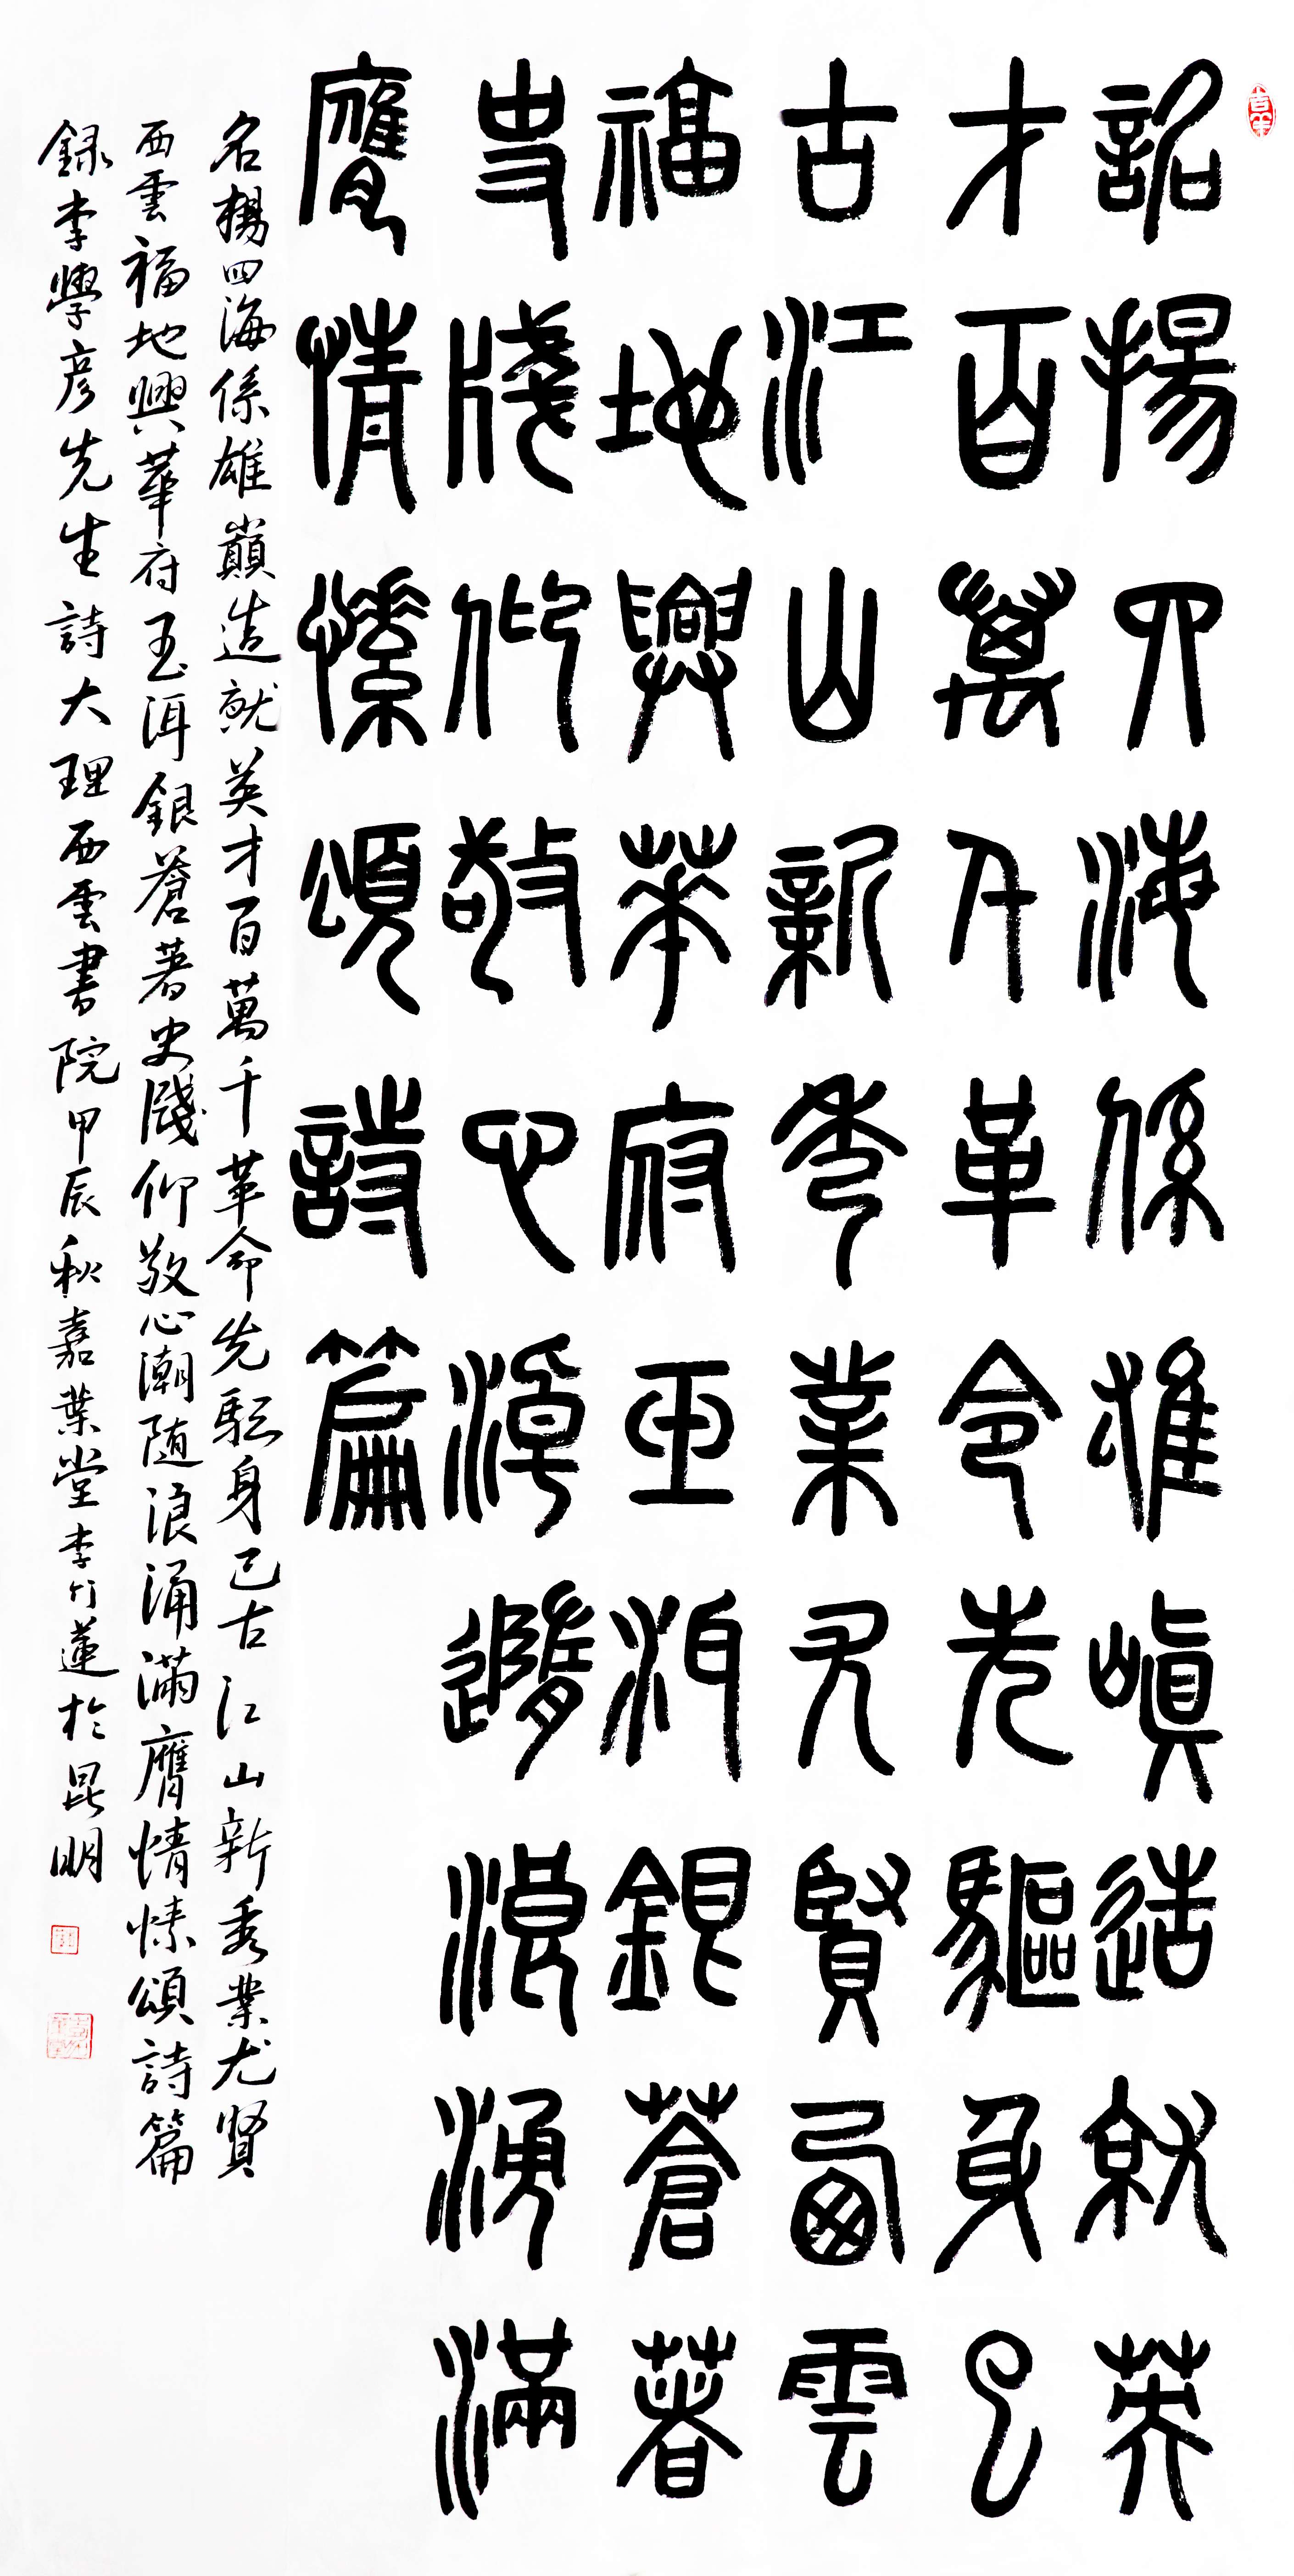 詺揚四海係雄巔造就英
才百萬千革命先驅身已
古江山新秀業尤賢西雲
福地興華府玉洱銀蒼著
史牋仰敬心潮隨浪涌滿
膺情愫頌詩篇
名楊四海係雄巔造就英才百萬千革命先駈身已古江山新秀業尤賢
西雲福地興華府玉洱銀蒼著史牋仰敬心潮随浪涌滿膺情愫頌詩篇
録李學彦先生詩大理西雲書院甲辰秋嘉葉堂李竹蓮於昆明